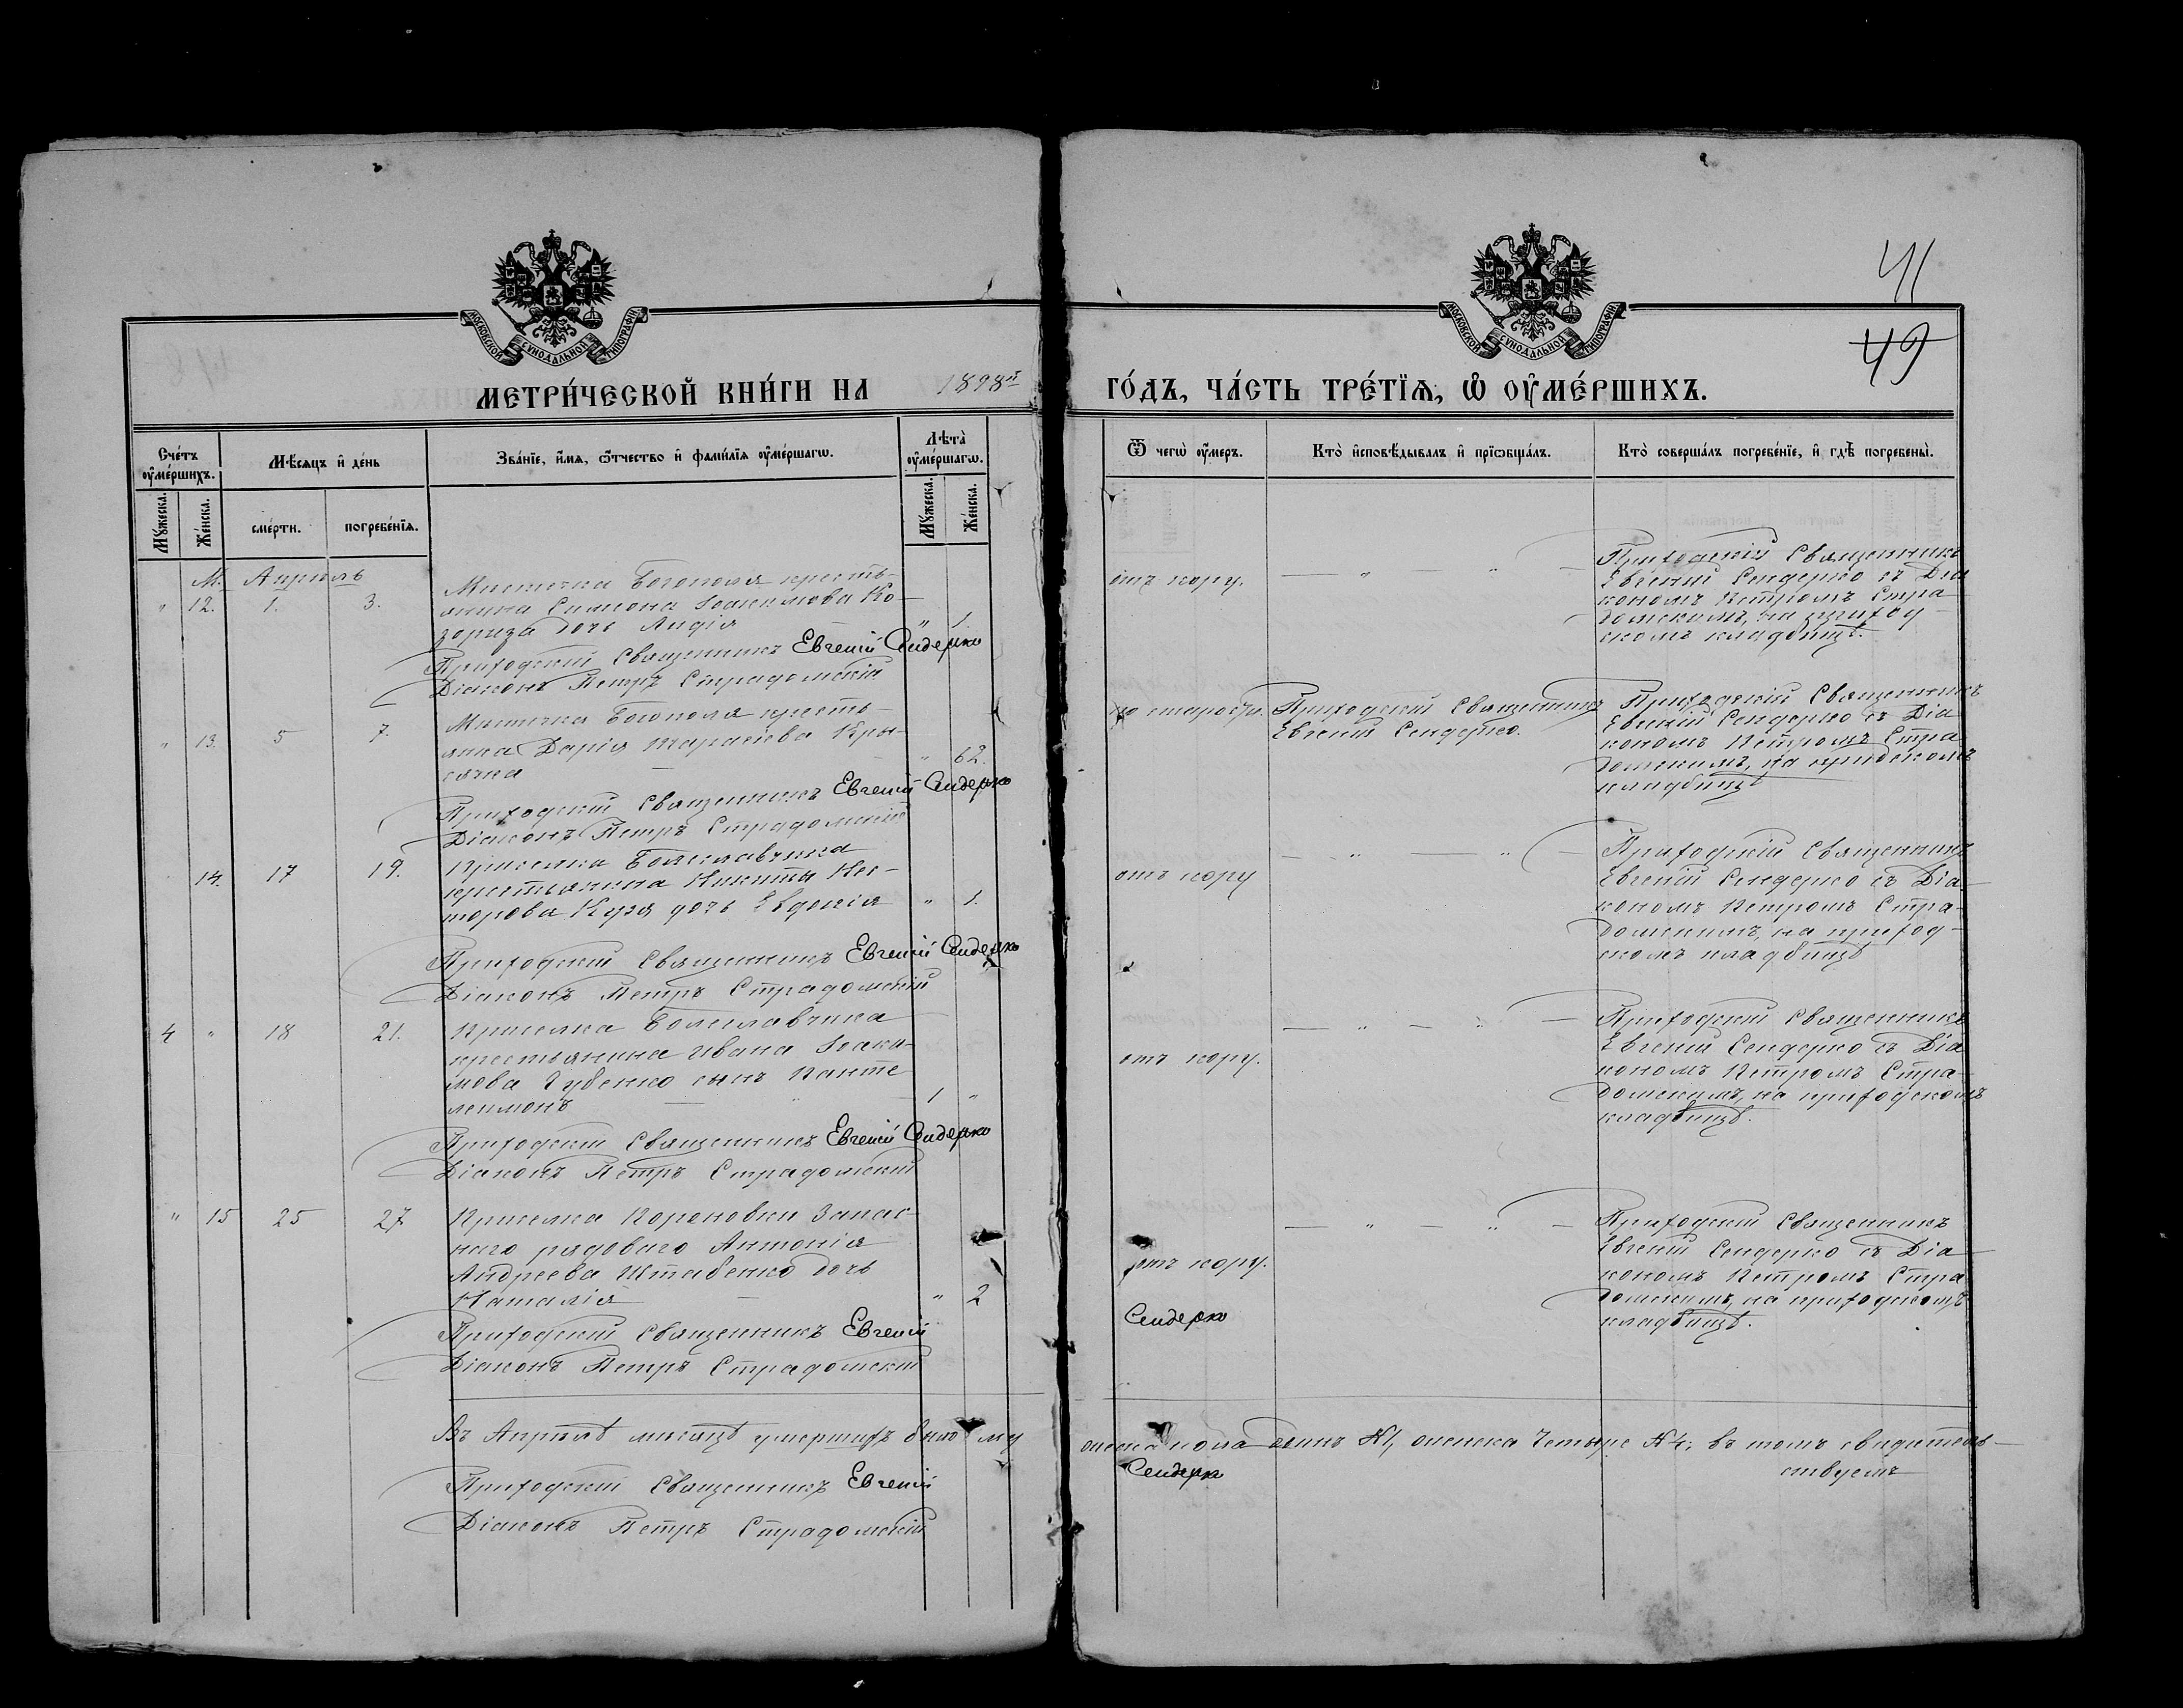 41
49
МОСКОВСКОЙ СѴНОДАЛЬНОЙ ТИПОГРАФІИ
МОСКОВСКОЙ СѴНОДАЛЬНОЙ ТИПОГРАФІИ
МЕТРИ́ЧЕСКОЙ КНИ́ГИ НА 1898й ГО́ДЪ, ЧА́СТЬ ТРЕ́ТІЯ, Ѡ ОУМЕ́РШИХЪ.
Сче́тъ оуме́ршихъ.
Мѣ́сяцъ и де́нь
Зва́нїе, и́мя, ѻ҆́тчество и фами́лїя оуме́ршагѡ.
Лѣта̀ оуме́ршагѡ.
Ѿ чегѡ̀ оу́меръ.
Кто̀ и҆сповѣ́дывалъ и прїѡбща́лъ.
Кто̀ соверша́лъ погребе́нїе, и гдѣ̀ погребены̀.
Му́жеска.
Же́нска.
сме́рти.
погребе́нїя.
Му́жеска.
Же́нска.
М. Апрѣль
" 12. 1. 3.
Мистечка Богополя кресть-
янина Симеона Іоакимова Ко-
зориза дочь Лидія " 1.
Приходскій Священникъ Евгеній Сендерко
Діаконъ Петръ Страдомскій
отъ кору.
— " — " —
Приходскій Священникъ
Евгеній Сендерко съ Діа
кономъ Петромъ Стра
домскимъ, на приход-
скомъ кладбищѣ.
" 13. 5 7.
Мистечка Богополя кресть-
янка Дарія Тарасіева Кры-
сячка — " 62.
Приходскій Священникъ Евгеній Сендерко
Діаконъ Петръ Страдомскій
Приходскій Священникъ
Евгеній Сендерко.
Приходскій Священникъ
Евгеній Сендерко съ Діа
кономъ Петромъ Стра
домскимъ, на
кладбищѣ
14. 17 19.
Приселка Болеславчика
крестьянина Никиты Нес-
торова Кузя дочь Евдокія " 1.
Приходскій Священникъ Евгеній Сендерко
Діаконъ Петръ Страдомскій
отъ кору
— " — " —
Приходскій Священникъ
Евгеній Сендерко съ Діа-
кономъ Петромъ Стра-
домскимъ, на приход-
скомъ кладбищѣ
4 " 18 21.
Приселка Болеславчика
крестьянина Ивана Іоаки-
мова Губенко сынъ Панте
леимонъ — " — 1 "
Приходскій Священникъ Евгеній Сендерко
Діаконъ Петръ Страдомскій
отъ кору.
— " — " —
Приходскій Священникъ
Евгеній Сендерко съ Діа
кономъ Петромъ Стра-
домскимъ, на приходскомъ
кладбищѣ.
" 15 25 27
Приселка Кореновки Запас-
наго рядоваго Антонія
Андреева Штабенко дочь
Наталія — " 2
Приходскій Священникъ Евгеній Сендерко
Діаконъ Петръ Страдомскій
отъ кору.
— " — " —
Приходскій Священникъ
Евгеній Сендерко съ Діа
кономъ Петромъ Стра
домскимъ, на приходскомъ
кладбищѣ.
Въ Апрѣлѣ мѣсяцѣ умершихъ было му жеска пола одинъ №1, женска четыре №4; въ томъ свидѣтель-
ствуемъ
Приходскій Священникъ Евгеній Сендерк
Діаконъ Петръ Страдомскій